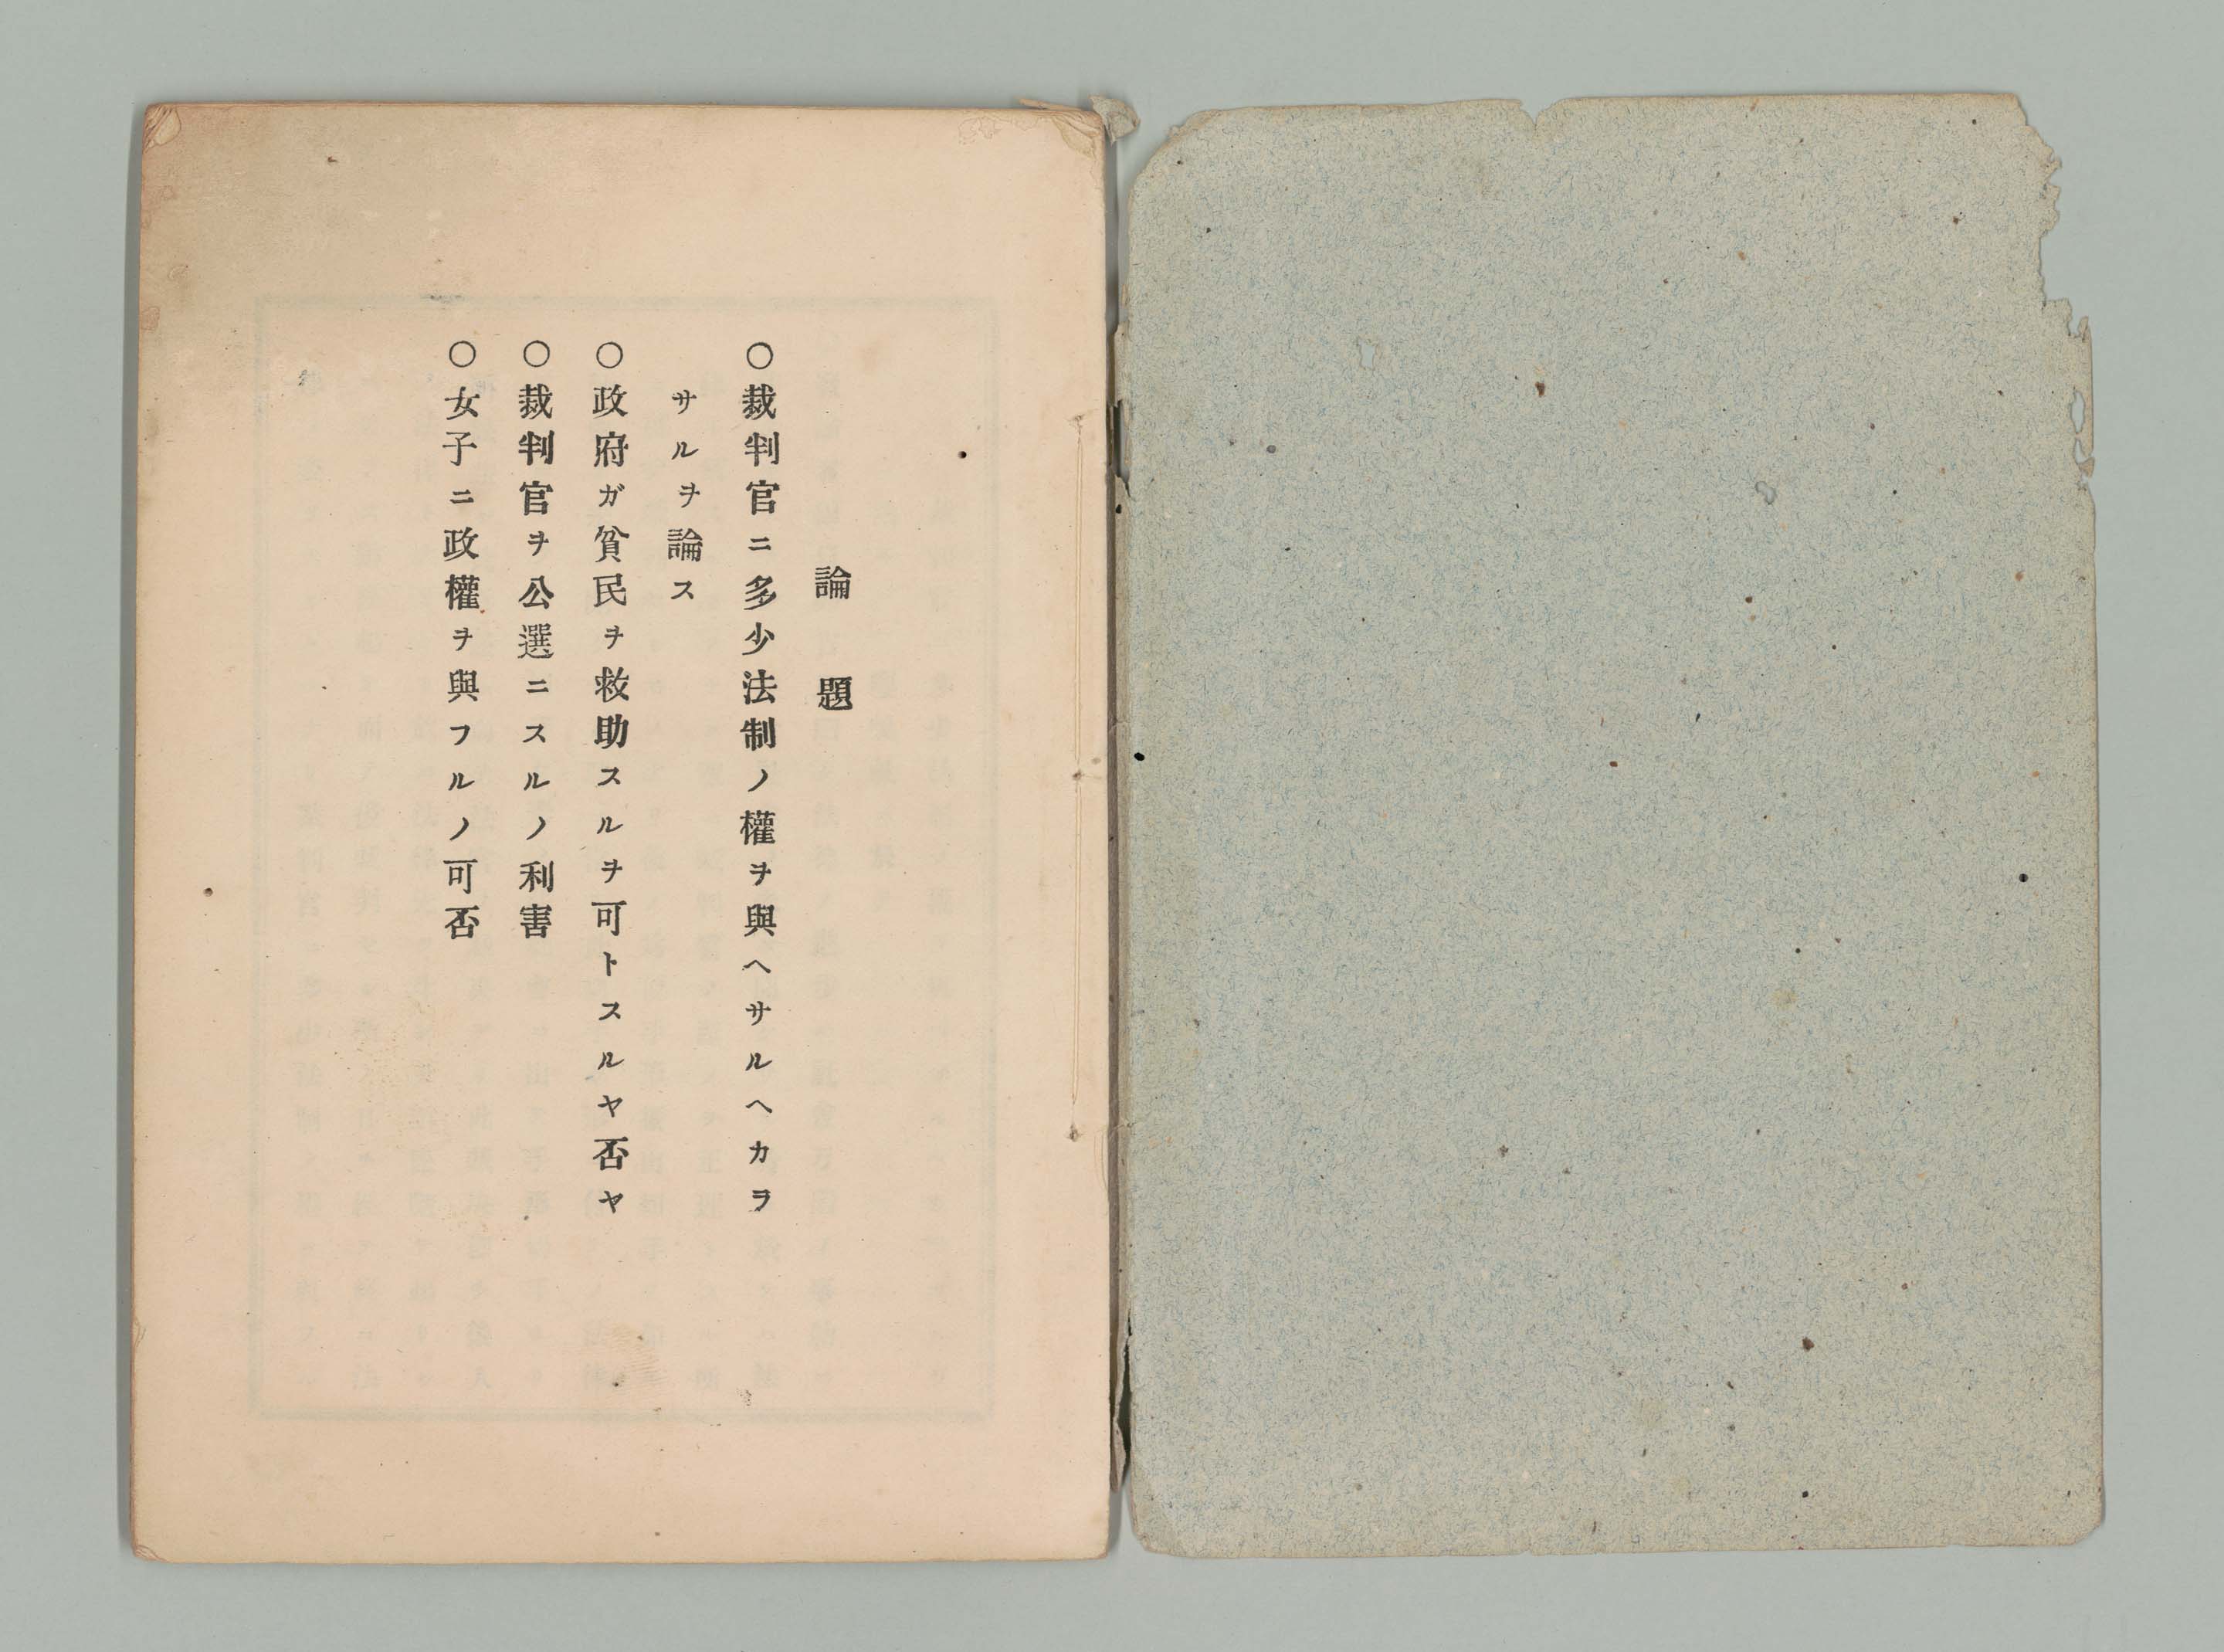 論題
○裁判官ニ多少法制ノ權ヲ與ヘサルヘカラ
サルヲ論ス
○政府ガ貧民ヲ救助スルヲ可トスルヤ否ヤ
○裁判官ヲ公選ニスルノ利害
○女子ニ政權ヲ與フルノ可否